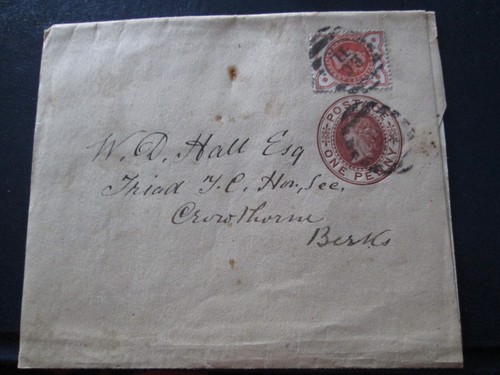 POSTAGE
ONE PENNY
W. D. Hall Esq
Triad T. C. Hon, Sec.
Crowthorne
Berks